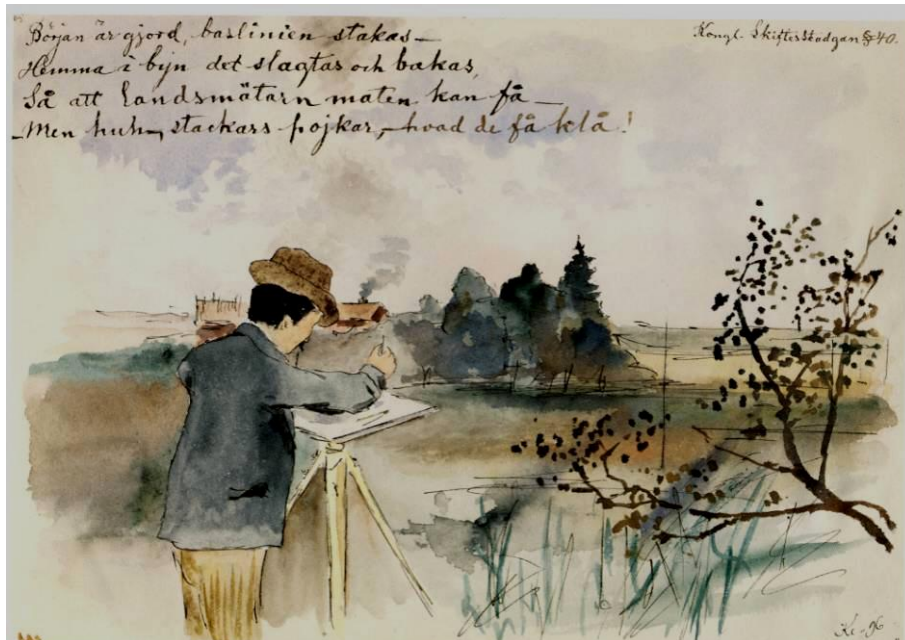 Början är gjord, baslinien stakas—
Hemma i byn det slagtas och bakas,
Så att Landsmätarn maten kan få—
—Men huh—, stackars pojkar,—hvad de få klå!
Kongl. Skiftesstadgan § 40.